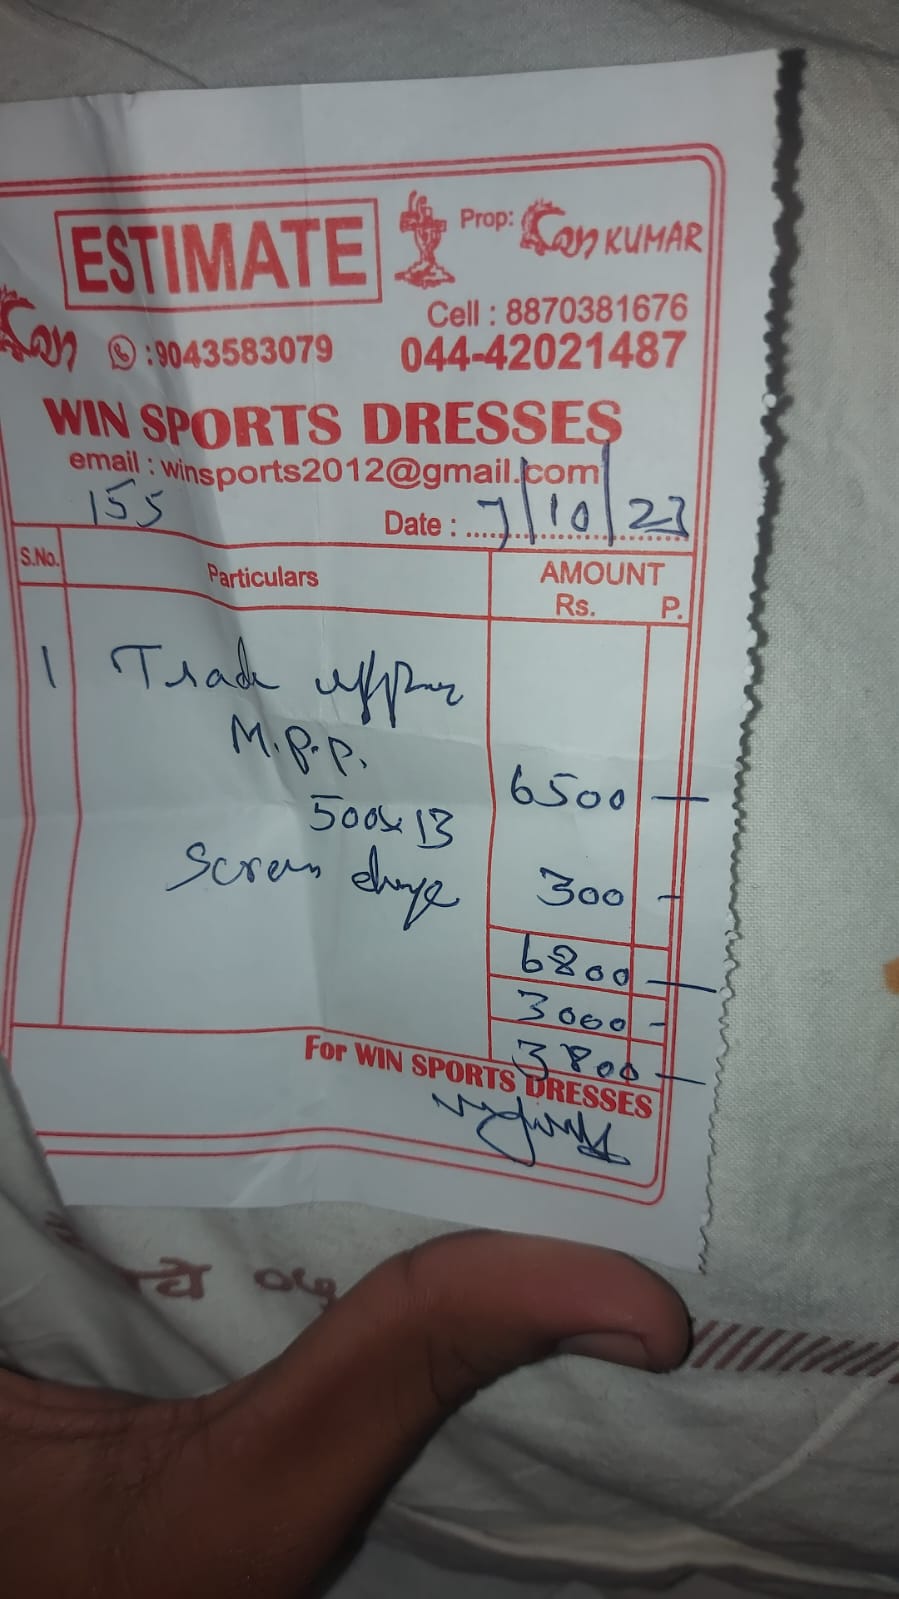 ESTIMATE
Prop: KUMAR
Cell : 8870381676
:9043583079 044-42021487
WIN SPORTS DRESSES
email : winsports2012@gmail.com
155 Date : 7/10/23
S.No. Particulars AMOUNT
Rs. P.
1 Trade
M.P.P. 6500 —
500x13
Screen 300 -
6800 —
3000 -
3800 —
For WIN SPORTS DRESSES